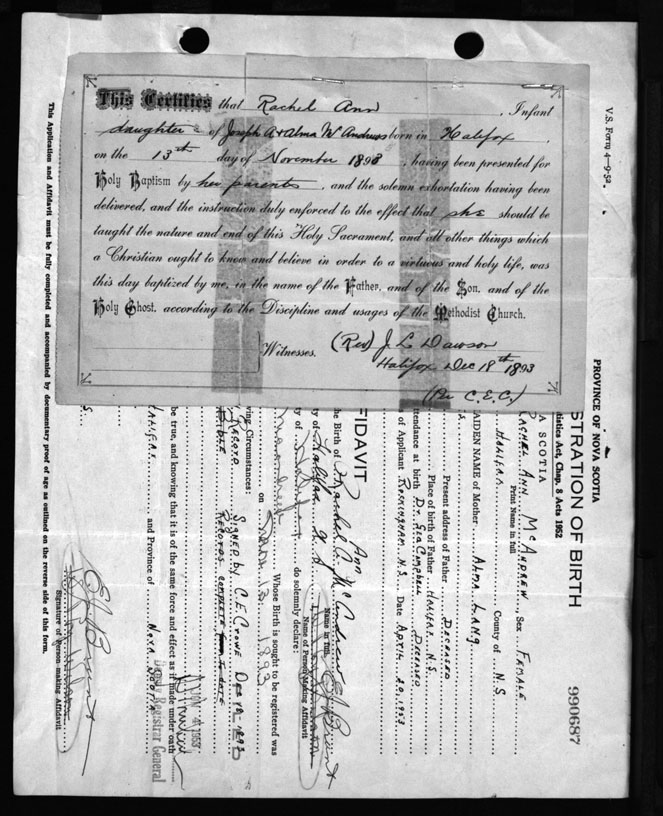 This Certifies that Rachel Ann, Infant
daughter of Joseph A + Alma McAndrews born in Halifax,
on the 13th day of November 1893, having been presented for
Holy Baptism by her parents, and the solemn exhortation having been
delivered, and the instruction duly enforced to the effect that she should be
taught the nature and end of this Holy Sacrament, and all other things which
a Christian ought to know and believe in order to a virtuous and holy life, was
this day baptized by me, in the name of the Father, and of the Son, and of the
Holy Ghost, according to the Discipline and usages of the Methodist Church.
Witnesses. (Rev) J. L. Dawson
Halifax Dec 18th 1893
(Per C.E.C.)
V.S. Form 4-9-52
PROVINCE OF NOVA SCOTIA
STRATION OF BIRTH
990687
A SCOTIA
istics Act, Chap. 8 Acts 1952
RACHEL ANN McANDREW Sex FEMALE
Print Name in full
HALIFAX County of N.S
AIDEN NAME of Mother ALMA LANG
Present address of Father DECEASED
Place of birth of Father HALIFAX, N.S.
ttendance at birth DR. GEO CAMPBELL DECEASED
s of Applicant ROCKINGHAM N.S Date APRIL 20, 1953
FIDAVIT
Name in full
Name of Person Making Affidavit
y of Halifax N S
ty of do solemnly declare:
the Birth of Rachel Ann McAndrew
Whose Birth is sought to be registered was
on 13 1893
wing Circumstances:
RECORD SIGNED by C.E. CROWE DEC 18-1893
BIBLE RECORDS COMPLETE TO DATE
be true, and knowing that it is of the same force and effect as if made under oath
HALIFAX and Province of NOVA SCOTIA
NOV 4 1953
Deputy Registrar General
Signature of Person making Affidavit
This Application and Affidavit must be fully completed and accompanied by documentary proof of age as outlined on the reverse side of this form.